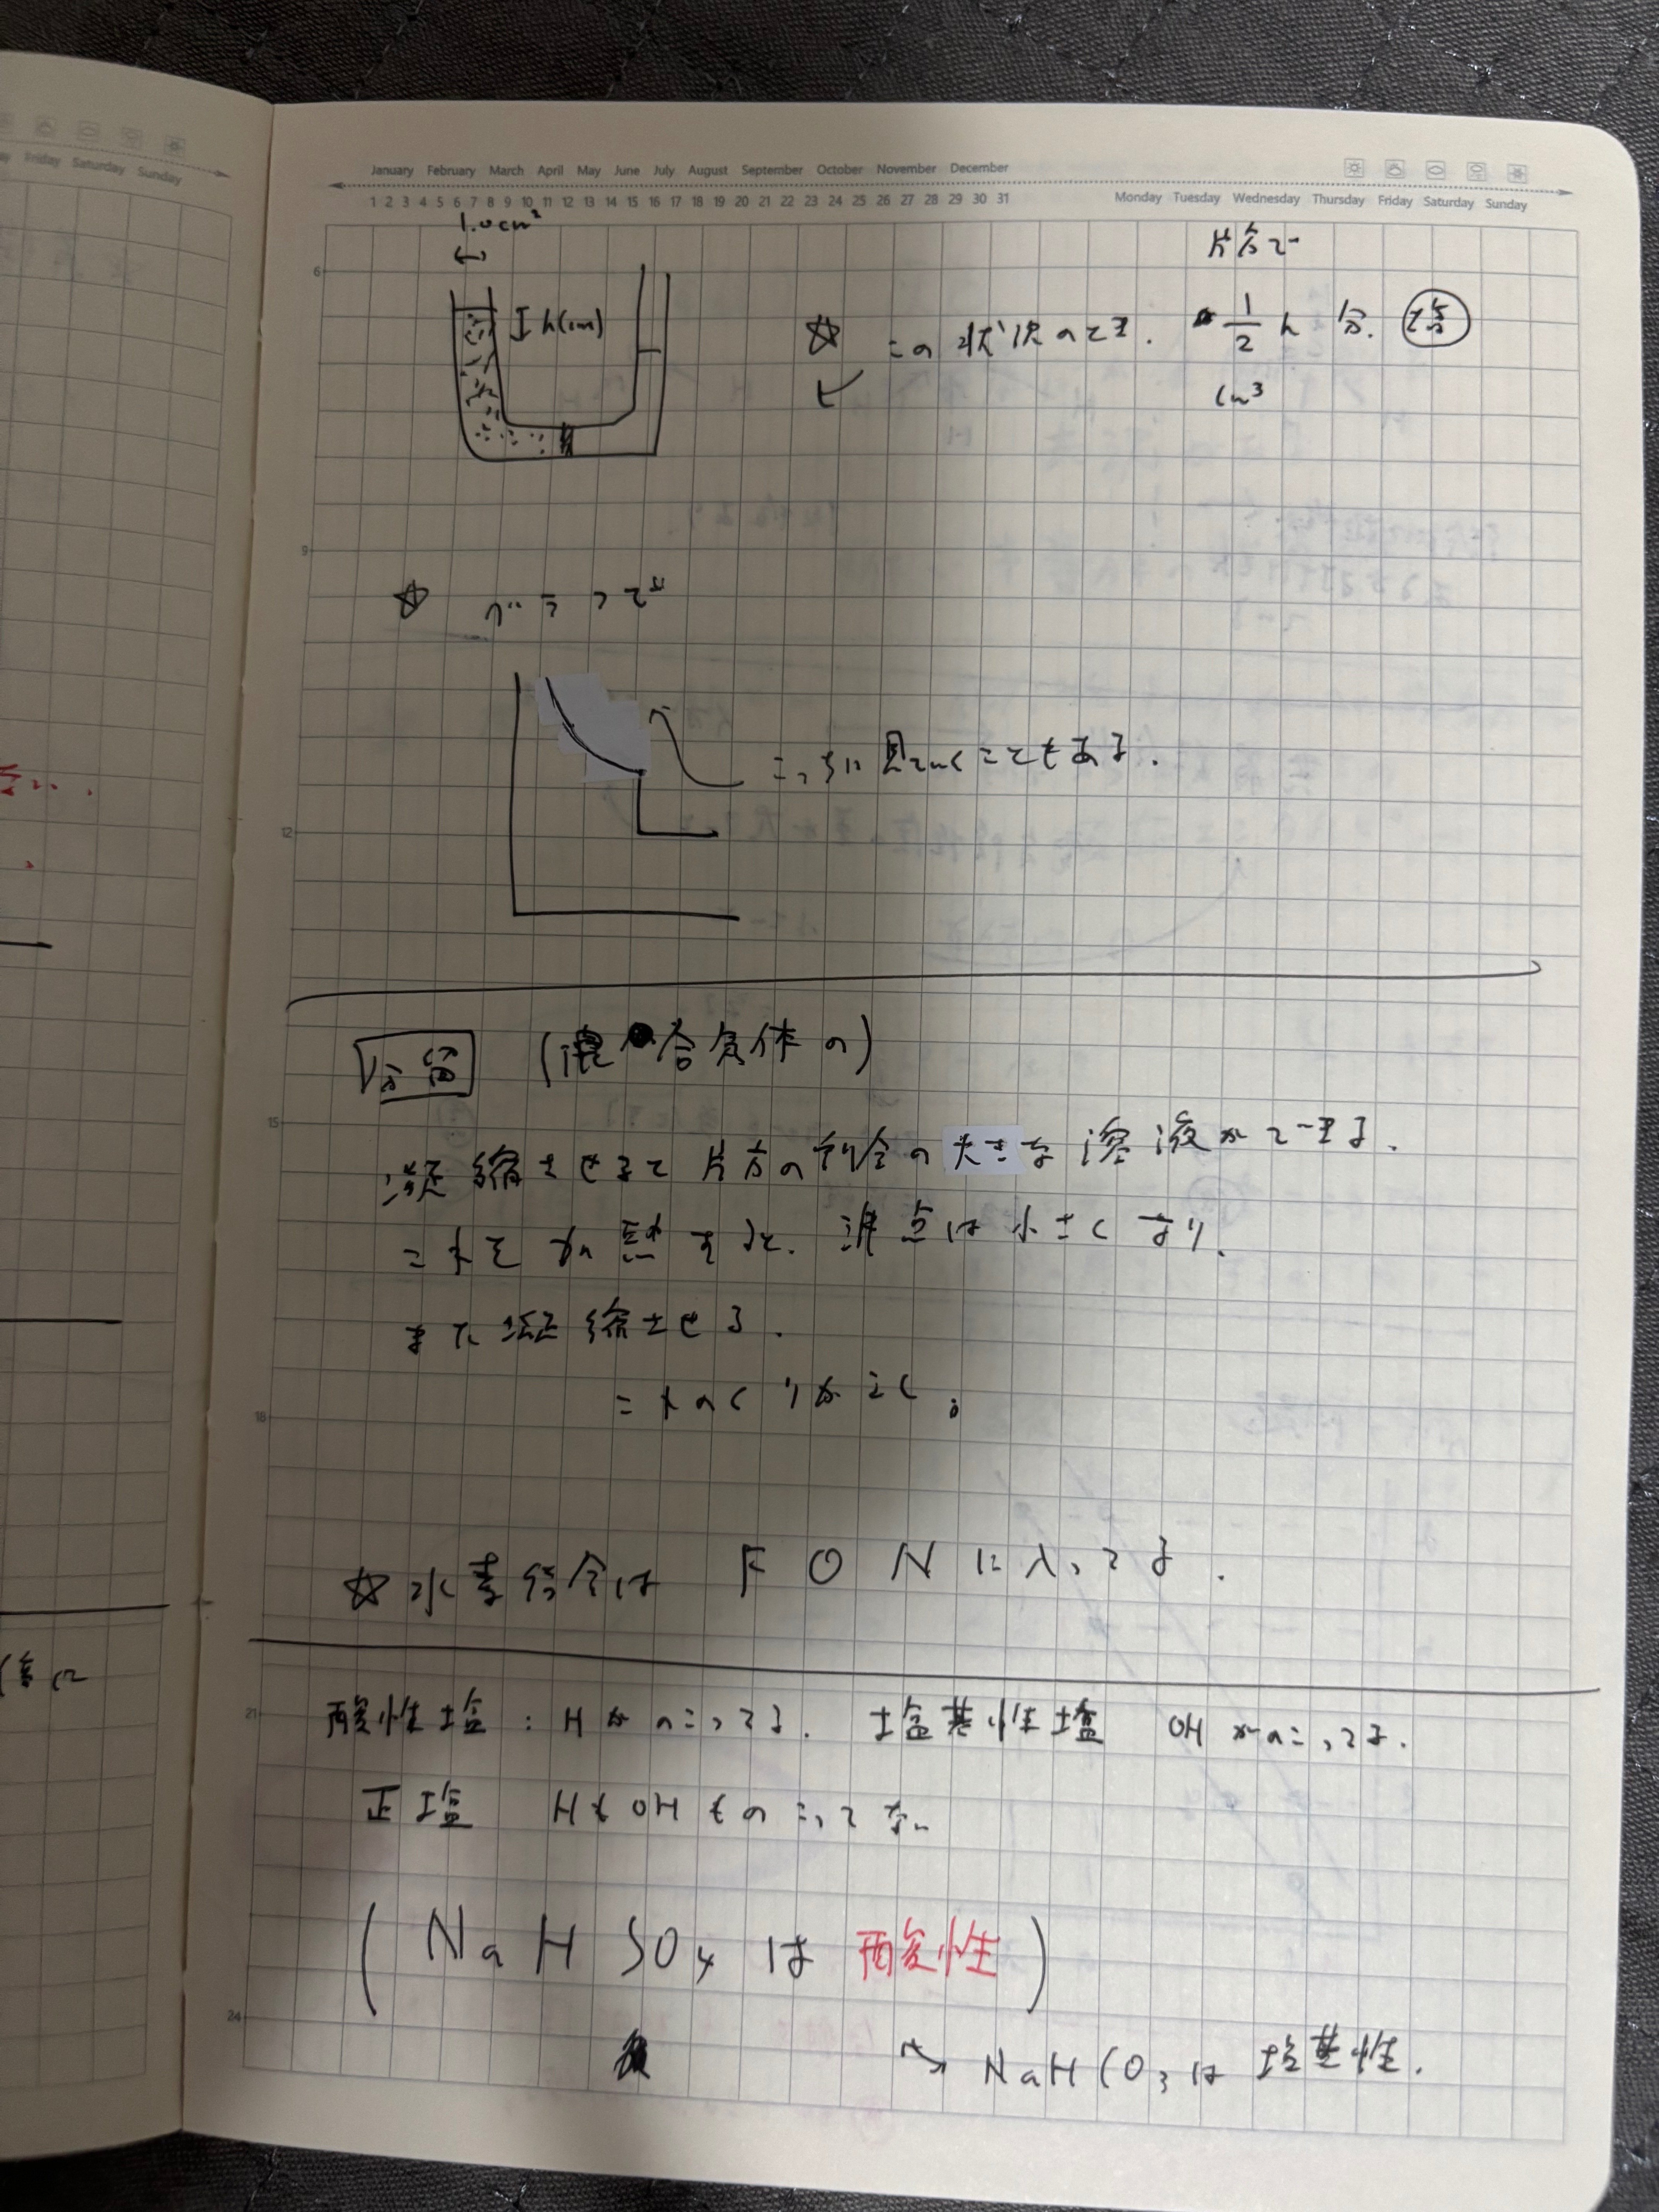 Friday Saturday Sunday
January February March April May June July August September October November December
1 2 3 4 5 6 7 8 9 10 11 12 13 14 15 16 17 18 19 20 21 22 23 24 25 26 27 28 29 30 31
Monday Tuesday Wednesday Thursday Friday Saturday Sunday
1.0cm²
片方で
6
h(cm)
☆ この状況のとき. 1/2 h 分.
cm³
9
☆ グラフで
こっちに見ていくこともある.
12
分留 (混合気体の)
15
凝縮させると片方の割合の大きな溶液ができる.
これを加熱すると. 沸点は小さくなり.
また凝縮させる.
18
これのくりかえし。
☆水素結合は F O N に入ってる.
21
酸性塩:Hがのこってる. 塩基性塩 OHがのこってる.
正塩 HもOHものこってない
(NaHSO4は酸性)
24
NaHCO3は塩基性.